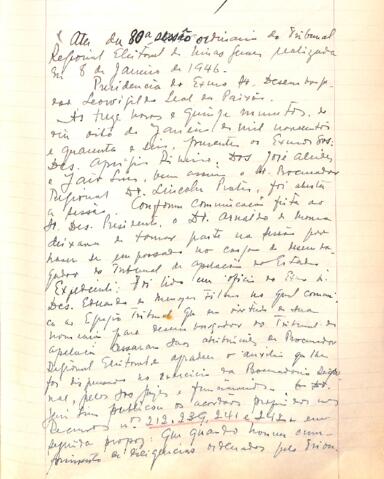 "Ata da 80ª sessão ordinaria do Tribunal
Regional Eleitoral de Minas Gerais realizada
em 8 de Janeiro de 1946.
Presidencia do Exmo Sr. Desembarga-
dor Leovigildo Leal da Paixão.
Ás treze horas e quinze minutos, do
dia oito de Janeiro de mil novecentos
e quarenta e seis, presentes os Exmos Srs.
Des. Aprigio Ribeiro, Drs. José Alcides
e Jair Lins, bem assim o Sr. Procurador
Regional Dr. Lincoln Prates, foi aberta
a sessão. Conforme communicação feita ao
Sr. Des. Presidente, o Dr. Arnaldo de Moura
deixava de tomar parte na sessão por
haver se empossado no cargo de desembar-
gador do Tribunal de apelação do Estado.
Expediente: Foi lido um oficio do Exmo Sr.
Des. Eduardo de Menezes Filho no qual commu-
nica ao Egregio Tribunal que em virtude de sua
nomeação para desembargador do Tribunal de
apelação cessaram suas atribuições de Procurador
Regional Eleitoral e agradece o auxilio que lhe
foi dispensado no exercicio da Procuradoria Regio-
nal, pelos seus juizes e funcionarios. O Dr.
Jair Lins publicou os acordãos proferidos nos
Recursos nº 212, 239, 241 e 242 e em
seguida propoz: Que quando houver cum-
primento de diligencias ordenadas pelo Tribu-